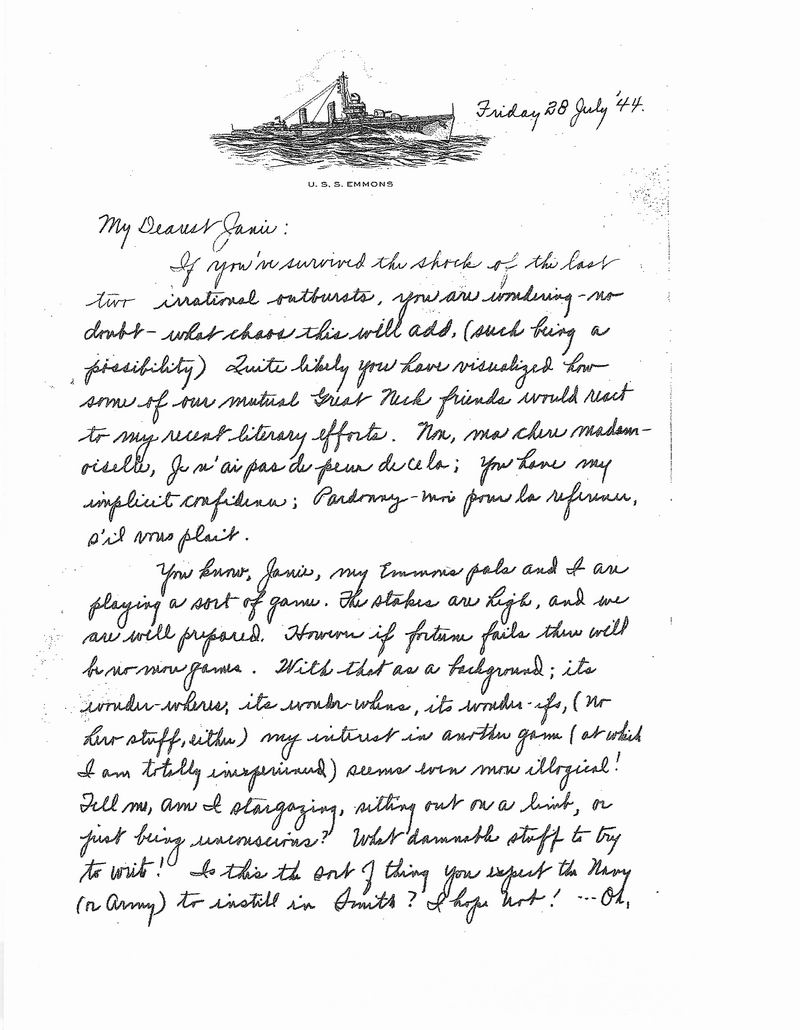 Friday 28 July '44.
U. S. S. EMMONS
My Dearest Janie:
If you've survived the shock of the last
two irrational outbursts, you are wondering-no
doubt- what chaos this will add, (such being a
possibility) Quite likely you have visualized how
some of our mutual Great Neck friends would react
to my recent literary efforts. Non, ma chere madam-
oiselle, Je n'ai pas de peur de cela; You have my
implicit confidence; Pardonny-moi pour la reference,
s'il vous plait.
You know, Janie, my Emmons pals and I are
playing a sort of game. The stakes are high, and we
are well prepared. However if fortune fails there will
be no more games. With that as a background; its
wonder-wheres, its wonder-whens, its wonder-ifs, (no
hero stuff, either) my interest in another game (at which
I am totally inexperienced) seems even more illogical!
Tell me, am I stargazing, sitting out on a limb, or
just being unconscious? What damnable stuff to try
to write! Is this the sort of thing you expect the Navy
(or Army) to instill in Smith? I hope not! ---Oh,